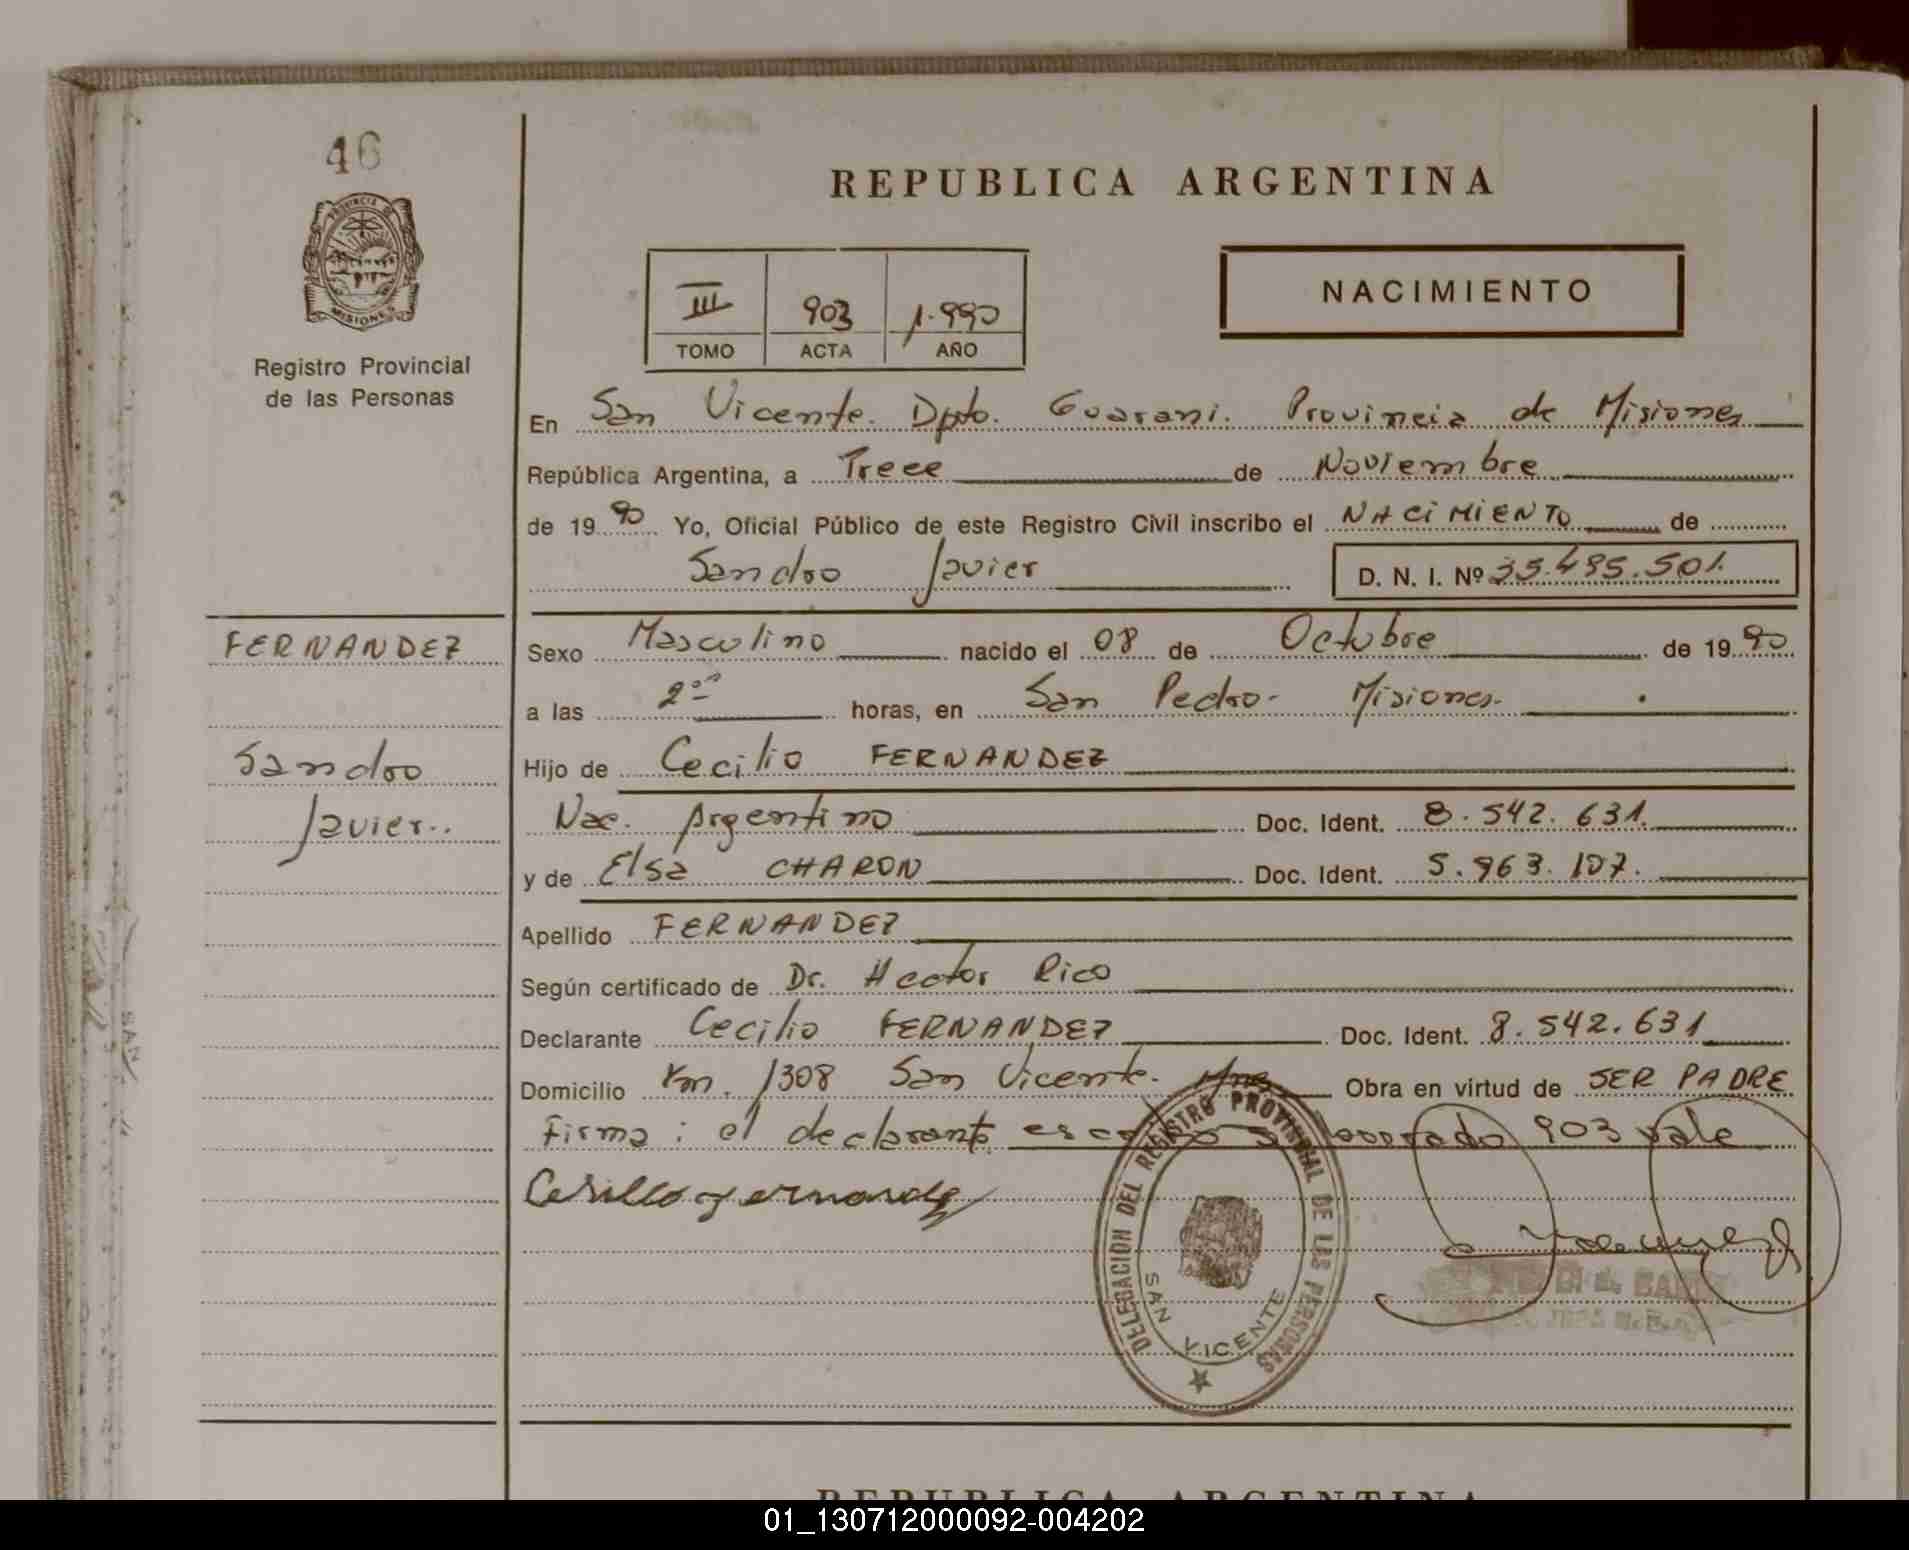 46
PROVINCIA DE
MISIONES
Registro Provincial
de las Personas
REPUBLICA ARGENTINA
III 903 1.990
TOMO ACTA AÑO
NACIMIENTO
En San Vicente. Dpto. Guarani. Provincia de Misiones
República Argentina, a Trece de Noviembre
de 1990 Yo, Oficial Público de este Registro Civil inscribo el NACIMIENTO de
Sandro Javier D. N. I. Nº 35.495.501.
FERNANDEZ
Sandro
Javier..
Sexo Masculino nacido el 08 de Octubre de 1990
a las 2⁰⁰ horas, en San Pedro- Misiones.
Hijo de Cecilio FERNANDEZ
Nac. Argentino Doc. Ident. 8.542.631.
y de Elsa CHARON Doc. Ident. 5.963.107.
Apellido FERNANDEZ
Según certificado de Dr. Hector Rico
Declarante Cecilio FERNANDEZ Doc. Ident. 8.542.631
Domicilio Km. 1308 San Vicente. Mnes Obra en virtud de SER PADRE
Firma: el declarante 903 vale
DELEGACION DEL REGISTRO PROVINCIAL DE LAS PERSONAS
SAN VICENTE
REPUBLICA ARGENTINA
01_130712000092-004202